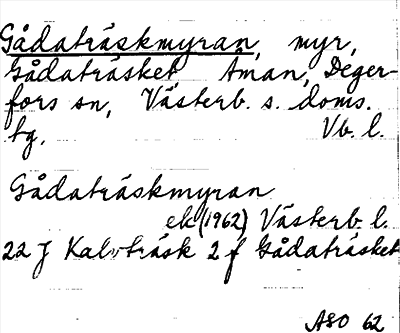 Gådaträskmyran, myr,
Gådaträsket, Åman, Deger-
fors sn, Västerb. s. doms.
tg. Vb. l.
Gådaträskmyran
ek (1962) Västerb. l.
22 J Kalvträsk 2 f Gådaträsket
ASO 62